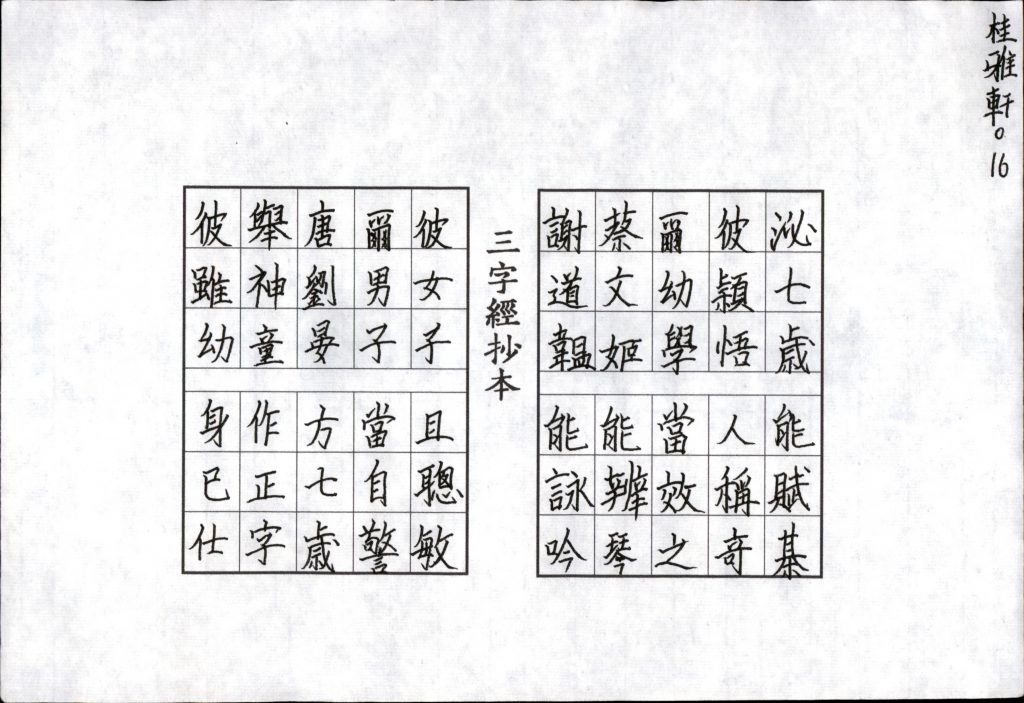 桂雅軒。16
泌七歲能賦棊
彼穎悟人稱奇
爾幼學當效之
蔡文姬能辨琴
謝道韞能詠吟
三字經抄本
彼女子且聰敏
爾男子當自警
唐劉晏方七歲
舉神童作正字
彼雖幼身已仕